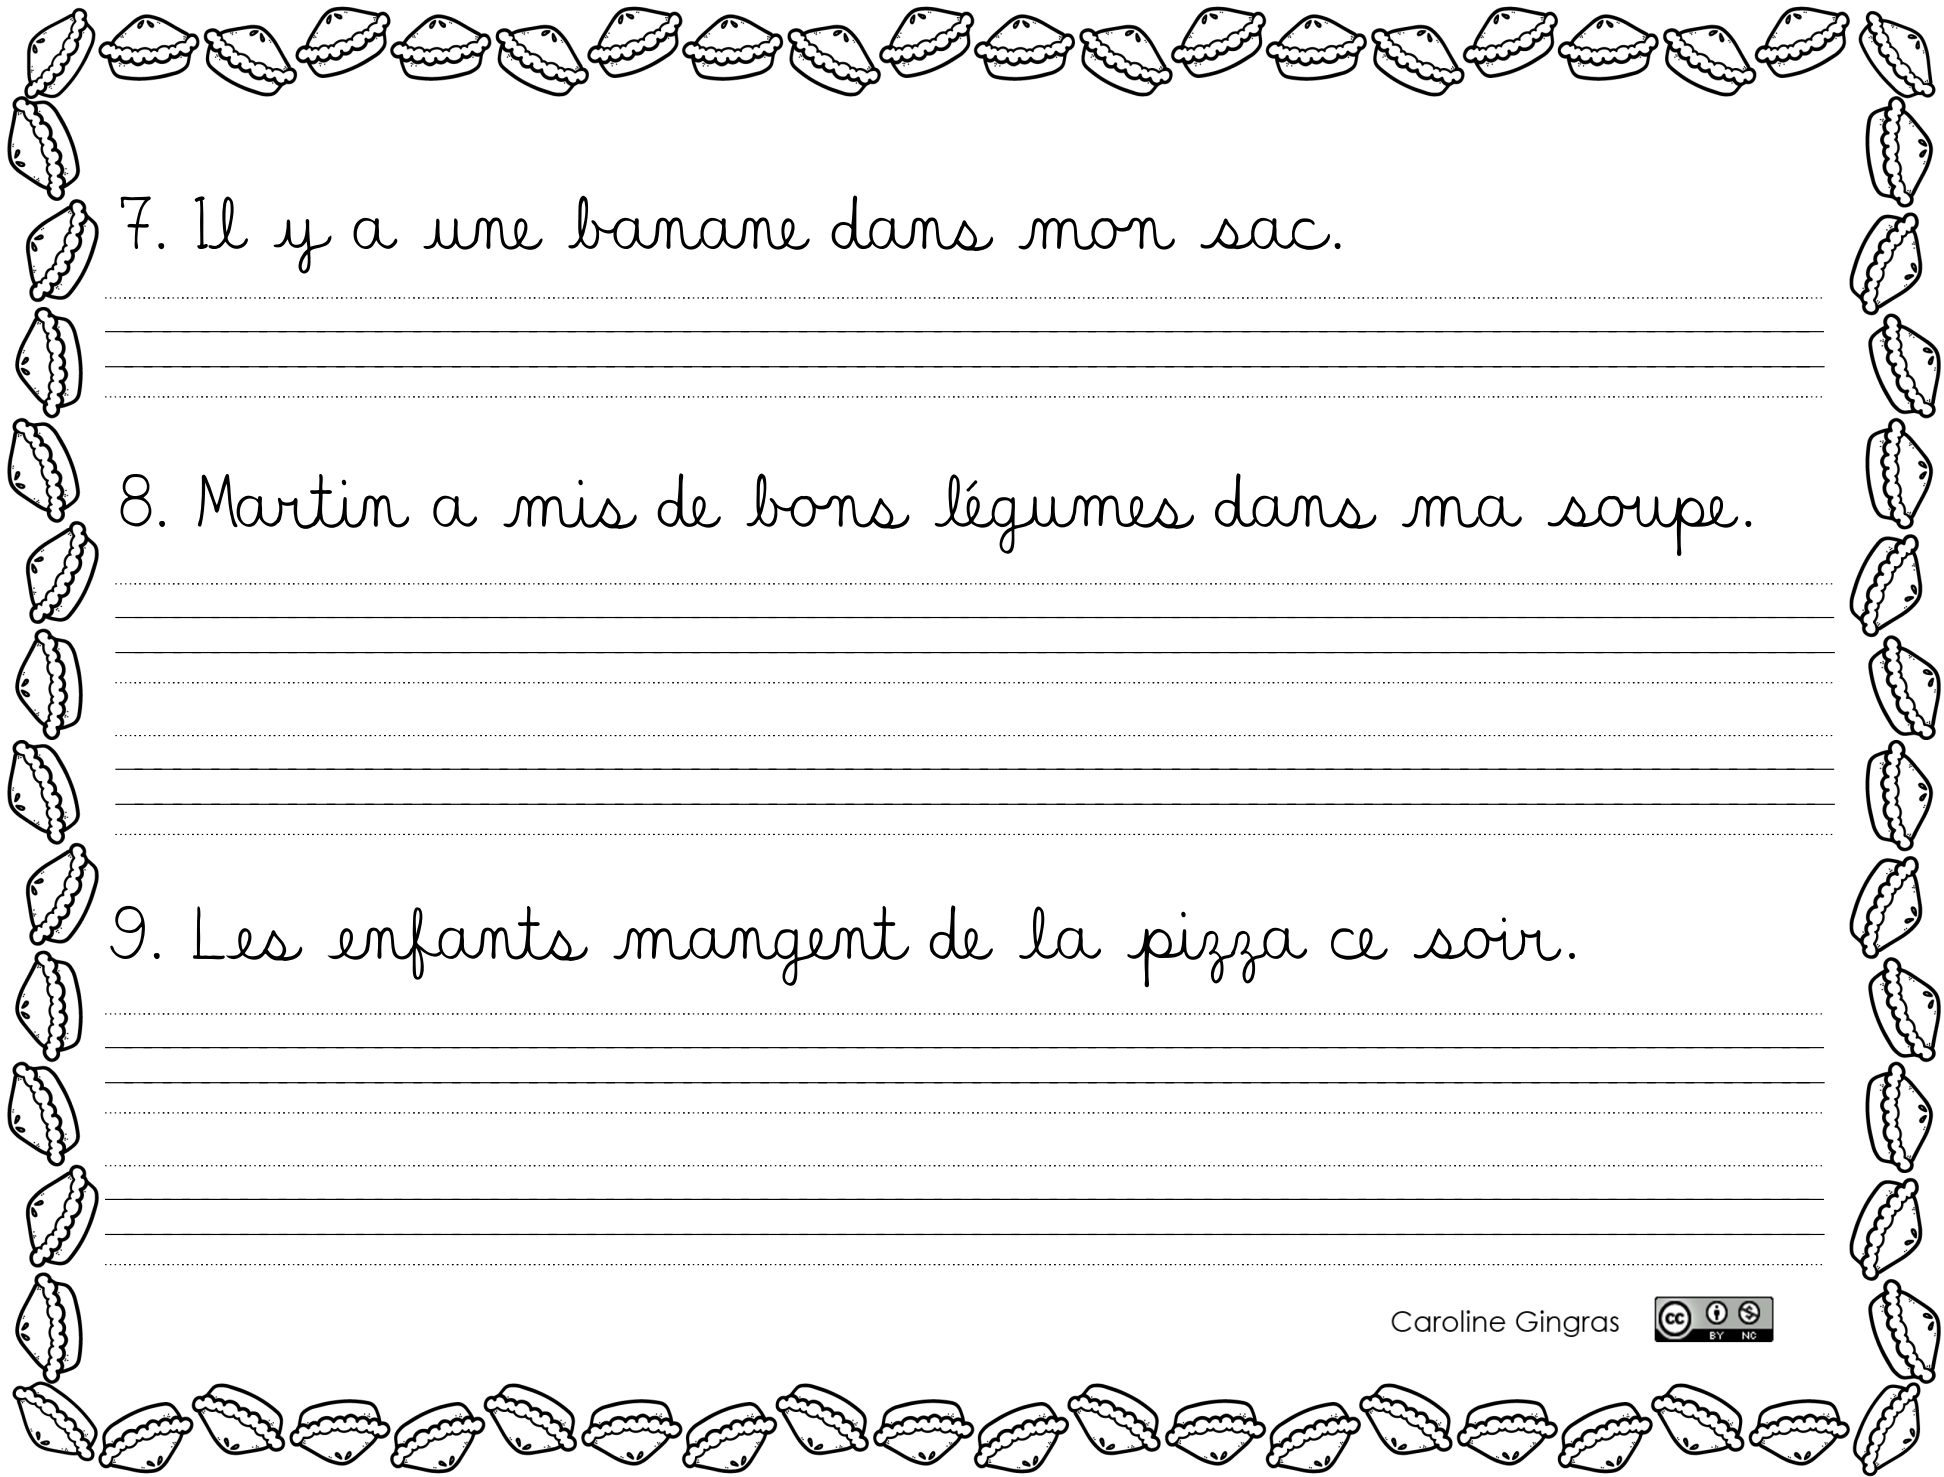 7. Il y a une banane dans mon sac.
8. Martin a mis de bons légumes dans ma soupe.
9. Les enfants mangent de la pizza ce soir.
Caroline Gingras
cc BY NC